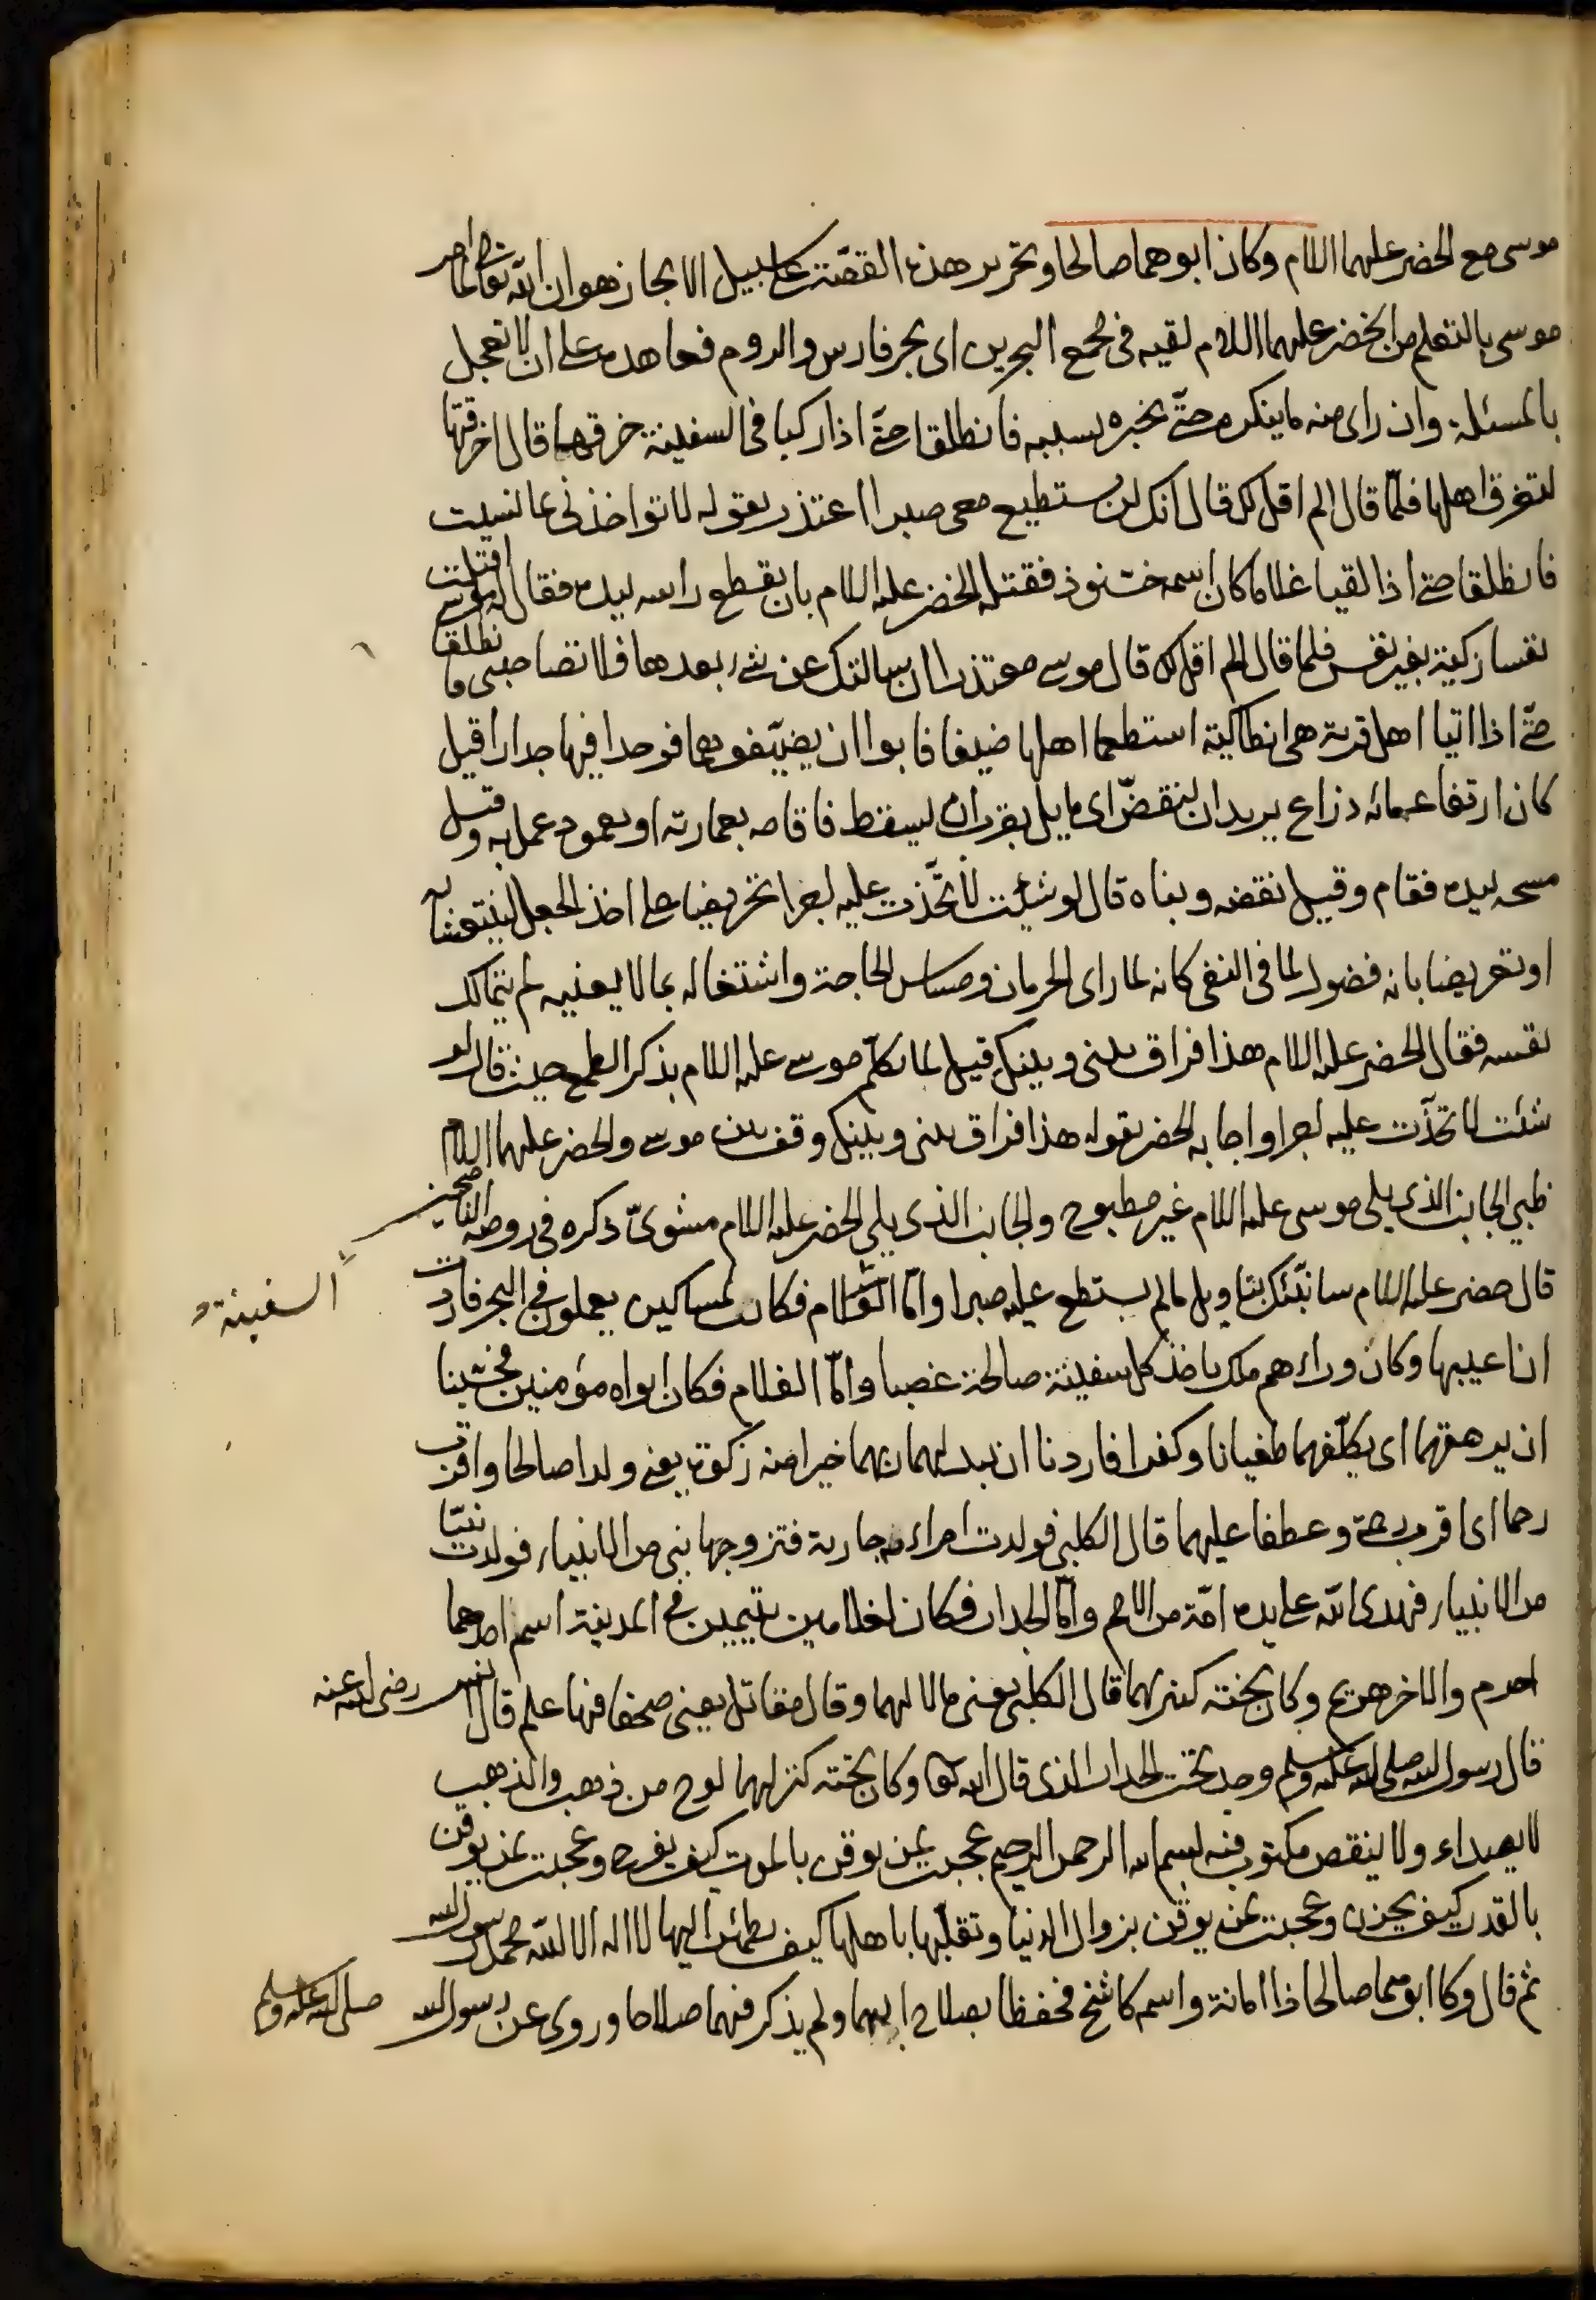 موسى مع الخضر عليهما السلام وكان ابوهما صالحا وتحرير هذه القصّة على سبيل الايجاز هو ان الله تعالى لما امر
موسى بالتعلم من الخضر عليهما السلام لقيه فى مجمع البحرين اى بحر فارس والروم فعاهده على ان لا تعجل
بالمسئلة وان راى منه ما ينكره حتّى يخبره بسببه فانطلقا حتّى اذا ركبا فى السفينة خرقها قال اخرقتها
لتغرق اهلها فلمّا قال الم اقل لك قال انك لن تستطيع معى صبرا اعتذر بقوله لا تواخذنى بما نسيت
فانطلقا حتى اذا لقيا غلاما كان اسمه خشنوذ فقتله الخضر عليه السلام بان يقطع راسه بيده فقال له موسى اقتلت
نفسا زكية بغير نفس فلما قال الم اقل لك قال موسى معتذرا ان سالتك عن شىء بعدها فلا تصاحبنى فانطلقا
حتّى اذا اتيا اهل قرية هى انطاكية استطعما اهلها ضيفا فابوا ان يضيّفوهما فوجدا فيها جدارا قيل
كان ارتفاعه مائة ذراع يريد ان ينقضّ اى مايل بقرب ان يسقط فاقامه بعمارته او بعمود عمل به وقيل
مسحه بيده فقام وقيل نقضه وبناه قال لو شئت لاتّخذت عليه اجرا تحريضا على اخذ الجعل لينتعشا به
او تعريضا بانه فضول لما فى النفى كانه لما راى الحرمان ومساس الحاجة واشتغاله بما لا يعنيه لم يتمالك
نفسه فقال الخضر عليه السلام هذا فراق بينى وبينك قيل لما تكلّم موسى عليه السلام بذكر الطمع حيث قال لو
شئت لاتخذت عليه اجرا واجابه الخضر بقوله هذا فراق بينى وبينك وقف بين موسى والخضر عليهما السلام
ظبى الجانب الذى يلى موسى عليه السلام غير مطبوح والجانب الذى يلى الخضر عليه السلام مشوىّ ذكره فى روضة الناصحين
قال خضر عليه السلام سانبّئك بتاويل مالم يستطع عليه صبرا وامّا الغلام فكانت لمساكين يعملون فى البحر فاردت
السفينة
ان اعيبها وكان وراءهم ملك ياخذ كل سفينة صالحة غصبا وامّا الغلام فكان ابواه مؤمنين فخشينا
ان يرهقهما اى يكلّفهما طغيانا وكفرا فاردنا ان يبدلهما ربهما خيرا منه زكوة يعنى ولدا صالحا واقرب
رحما اى اقرب رحمة وعطفا عليهما قال الكلبى فولدت امراءته جارية فتزوجها نبى من الانبياء فولدت نبيّا
من الانبياء فهدى الله على يده امّة من الامم وامّا الجدار فكان لغلامين يتيمين فى المدينة اسم احدهما
احرم والاخر هريم وكان تحته كنز لهما قال الكلبى يعنى مالا لهما وقال مقاتل يعنى صحفا فيها علم قال انس رضى الله عنه
قال رسول الله صلى الله عليه وسلم وجد تحت الجدار الذى قال الله تعالى وكان تحته كنز لهما لوح من ذهب والذهب
لا يصداء ولا ينقص مكتوب فيه بسم الله الرحمن الرحيم عجبت لمن يوقن بالموت كيف يفرح وعجبت لمن يوقن
بالقدر كيف يحزن وعجبت لمن يوقن بزوال الدنيا وتقلّبها باهلها كيف يطمائن اليها لا اله الا الله محمد رسول الله
ثم قال وكا ابوهما صالحا ذا امانة واسمه كاشخ فحفظا بصلاح ابيهما ولم يذكر فيهما صلاحا وروى عن رسول الله صلى الله عليه وسلم